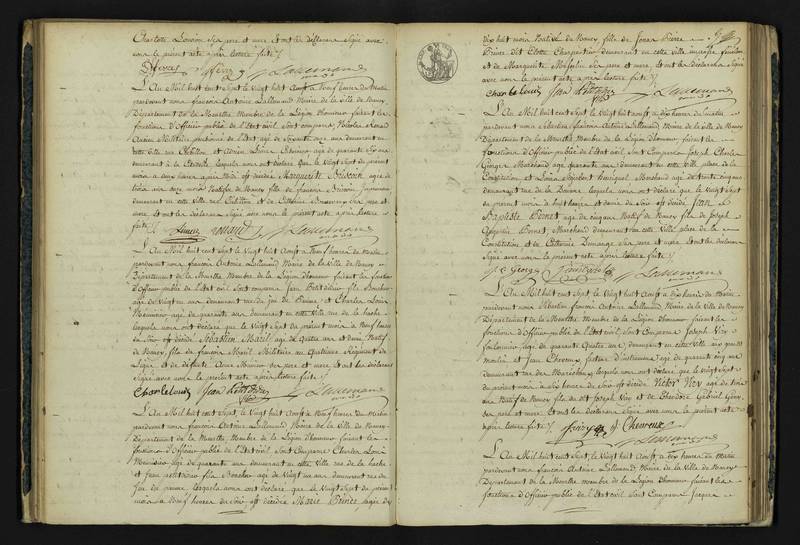 Charlotte Lowion Ses pere et mere Et ont les déclarans Signé avec
nous le présent acte après lecture faite /.
Lallemand
L'An Mil huit cent Sept le Vingt huit Aoust a Neuf heures du Matin
pardevant nous françois Antoine Lallemand Maire de la Ville de Nancy
Département de la Meurthe Membre de la Légion d'honneur faisant les
fonctions d'Officier public de l'Etat civil Sont comparus Nicolas
agé de Soixante ans demeurant en
cette Ville rue et agé de quarante Six ans
demeurant a lesquels nous ont déclaré que le Vingt Sept du présent
mois a onze heures après Midi est décédé Marguerite Brisson agée de
trois ans onze mois Native de Nancy fille de francois Brisson
demeurant en cette Ville rue et de Catherine Ses pere et
mere, et ont les déclarans Signé avec nous le présent acte après lecture
faite /. Lallemand
L'An Mil huit cent Sept le Vingt huit Aoust a Neuf heures du Matin
pardevant nous françois Antoine Lallemand Maire de la Ville de Nancy
Département de la Meurthe Membre de la Légion d'honneur faisant les fonctions
d'Officier public de l'Etat civil Sont comparus Jean fils Boucher
agé de Vingt un ans demeurant rue du jeu de Paume et Charles Louis
agé de quarante ans demeurant en cette Ville rue de la hache
lesquels nous ont déclaré que le Vingt Sept du présent mois a Neuf heures
du Soir est décédé Sébastien Maril agé de Quatre ans et demi Natif
de Nancy fils de francois Maril Militaire au Quatrieme Régiment de
Ligne et de défunte Ses pere et mere et ont les déclarans
Signé avec nous le présent acte après lecture faite /.
Charle Louis Jean Lallemand
L'An Mil huit cent Sept le Vingt huit Aoust a Neuf heures du Matin
pardevant nous francois Antoine Lallemand Maire de la Ville de Nancy
Département de la Meurthe Membre de la Légion d'honneur faisant les
fonctions d'Officier public de l'Etat civil Sont Comparus Charles Louis
agé de quarante ans demeurant en cette Ville rue de la hache
et Jean fils Boucher agé de Vingt un ans demeurant rue du
jeu de paume lesquels nous ont déclaré que le Vingt Sept du présent
mois a Neuf heures du Soir est décédée Marie Brince agée de
dix huit mois Native de Nancy fille de Jonas Pierre
Brince dit Charpentier demeurant en cette Ville
et de Marguerite Ses pere et mere, Et ont les déclarans Signé
avec nous le présent acte après lecture faite /.
Charle Louis Jean Lallemand
L'An Mil huit cent Sept le Vingt huit Aoust a dix heures du Matin
pardevant nous francois Antoine Lallemand Maire de la Ville de Nancy
Département de la Meurthe Membre de la Légion d'honneur faisant les
fonctions d'Officier public de l'Etat civil Sont Comparus Joseph Charles
George Marchand agé quarante ans demeurant en cette Ville place de la
Constitution et Louis Marchand agé de trente cinq ans
demeurant rue de la Douane lesquels nous ont déclaré que le Vingt Sept
du présent mois a huit heures et demie du Soir est décédé Jean
Baptiste Benet agé de cinq ans Natif de Nancy fils de Joseph
Benet Marchand demeurant en cette Ville place de la
Constitution et de Catherine Demange Ses pere et mere Et ont les déclarans
Signé avec nous le présent acte après lecture faite /.
George Lallemand
L'An Mil huit cent Sept le Vingt huit Aoust a dix heures du Matin
pardevant nous francois Antoine Lallemand Maire de la Ville de Nancy
Département de la Meurthe Membre de la Légion d'honneur faisant les
fonctions d'Officier public de l'Etat civil Sont Comparus Joseph
agé de quarante Quatre ans demeurant en cette Ville
et Jean Chevreux facteur d'instrumens agé de quarante cinq ans
demeurant rue des Maréchaux lesquels nous ont déclaré que le Vingt Sept
du présent mois a dix heures du Soir est décédé Victor agé de trois
ans Natif de Nancy fils de dit Joseph et de Théodore Gabriel
Ses pere et mere Et ont les déclarans Signé avec nous le présent acte
après lecture faite /. J Chevreux
Lallemand
L'An Mil huit cent Sept le Vingt huit Aoust a dix heures du Matin
pardevant nous francois Antoine Lallemand Maire de la Ville de Nancy
Département de la Meurthe Membre de la Légion d'honneur faisant les
fonctions d'Officier public de l'Etat civil Sont Comparus